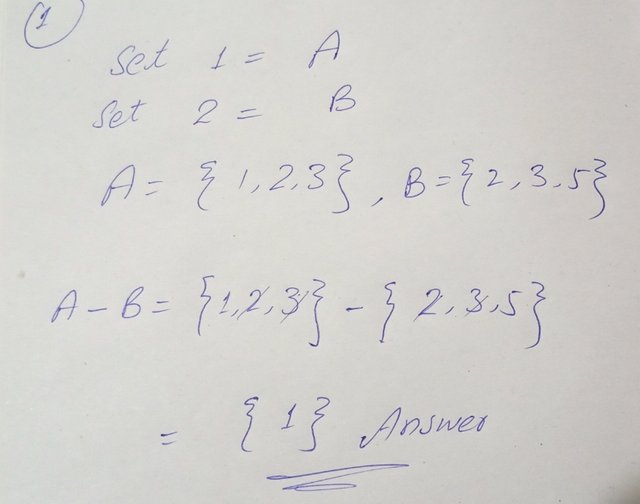 1
Set 1 = A
Set 2 = B
A = {1,2,3}, B = {2,3,5}
A - B = {1,2,3} - {2,3,5}
= {1} Answer